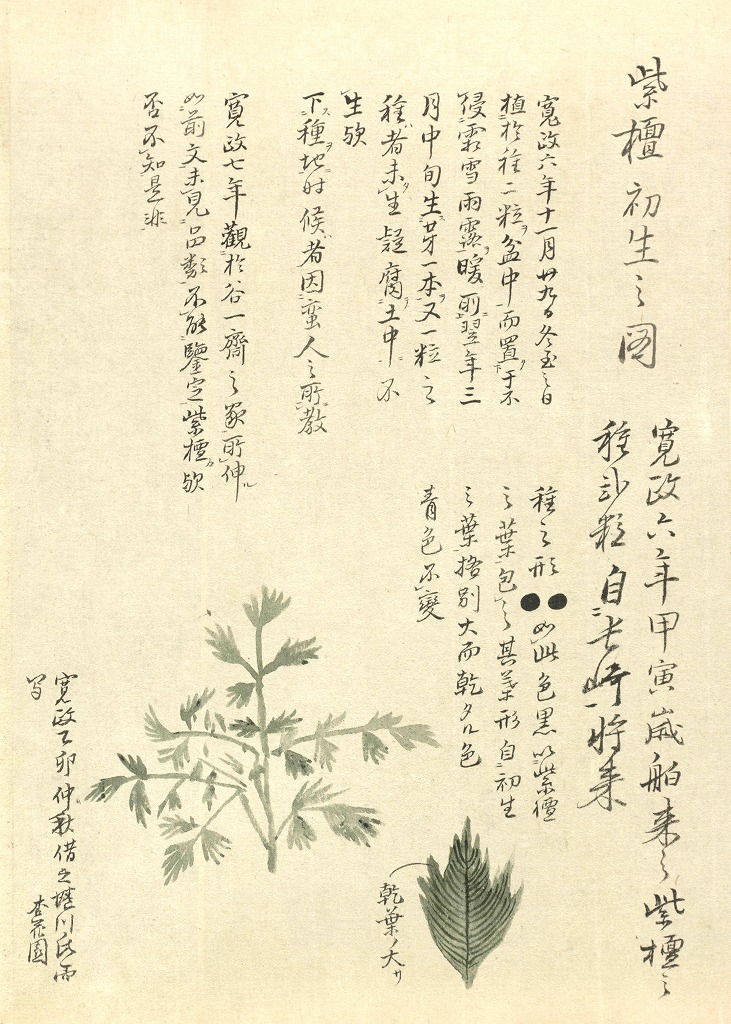 紫檀初生之図
寛政六年甲寅歳舶来之紫檀之
種弐粒自ニ長崎一将来
寛政六年十一月廿九日冬至之日
植於種二粒ヲ盆中ニ而置下于不
侵霜雪雨露ヲ暖前上翌年三
月中旬生ニ芽一本ヲ又一粒之
種者未生疑腐ニ土中ニ不
生欤
下ス種ヲ地ニ時候者因蛮人之所教
寛政七年観於谷一齋之家所伸ル
如前文未見品類不能鑒定紫檀欤
否不知是非
種之形●●如此色黒以紫檀
之葉包之其葉形自ニ初生
之葉格別大而乾タル色
青色不変
乾葉ノ大サ
寛政乙卯仲秋借之堀川氏而
写
杏花園